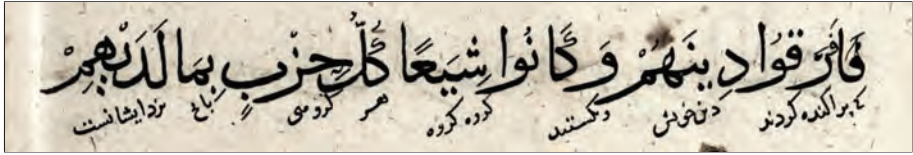 فَارَقُوا دِينَهُمْ وَكَانُوا شِيَعًا كُلُّ حِزْبٍ بِمَا لَدَيْهِمْ
پراکنده کردند دین خویش و گشتند گروه گروه هر گروهی بآنچ نزد ایشانست